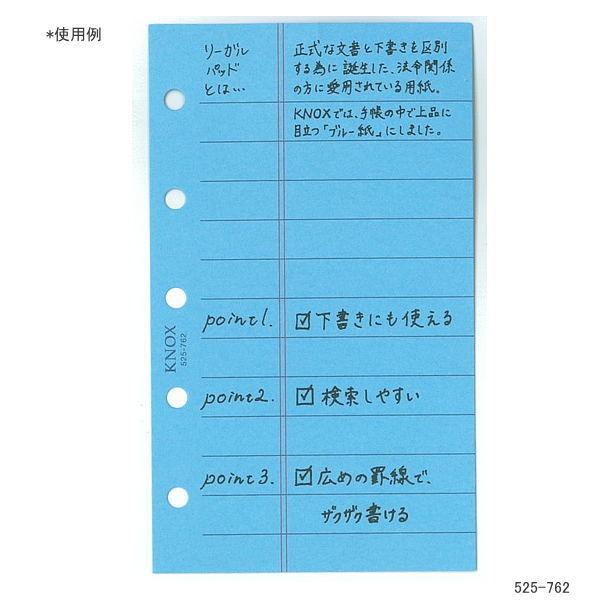 *使用例
リーガル
パッド
とは…
正式な文書と下書きを区別
する為に誕生した、法令関係
の方に愛用されている用紙。
KNOXでは、手帳の中で上品に
目立つ「ブルー紙」にしました。
point1.
☑下書きにも使える
KNOX
525-762
point2.
☑検索しやすい
point3.
☑広めの罫線で、
ザクザク書ける
525-762